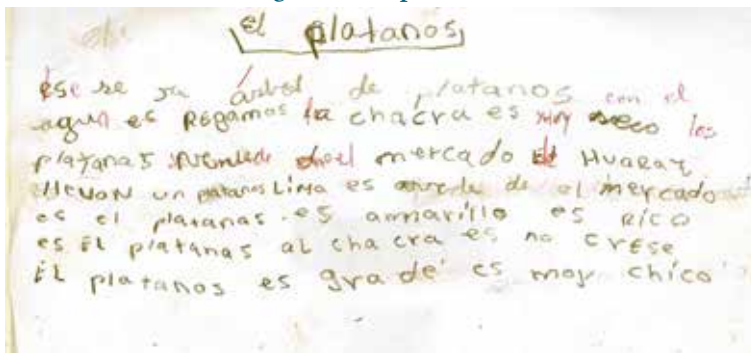 el platanos
ese se sa árbol de platanos con el
agua es Regamos la chacra es muy seco los
platanas vemlede en el mercado de HUARAZ
llevan un platanos Lima es de el mercado
es el platanas es amarillo es Rico
es El platanas al chacra es no crese
EL platanos es grade es moy chico